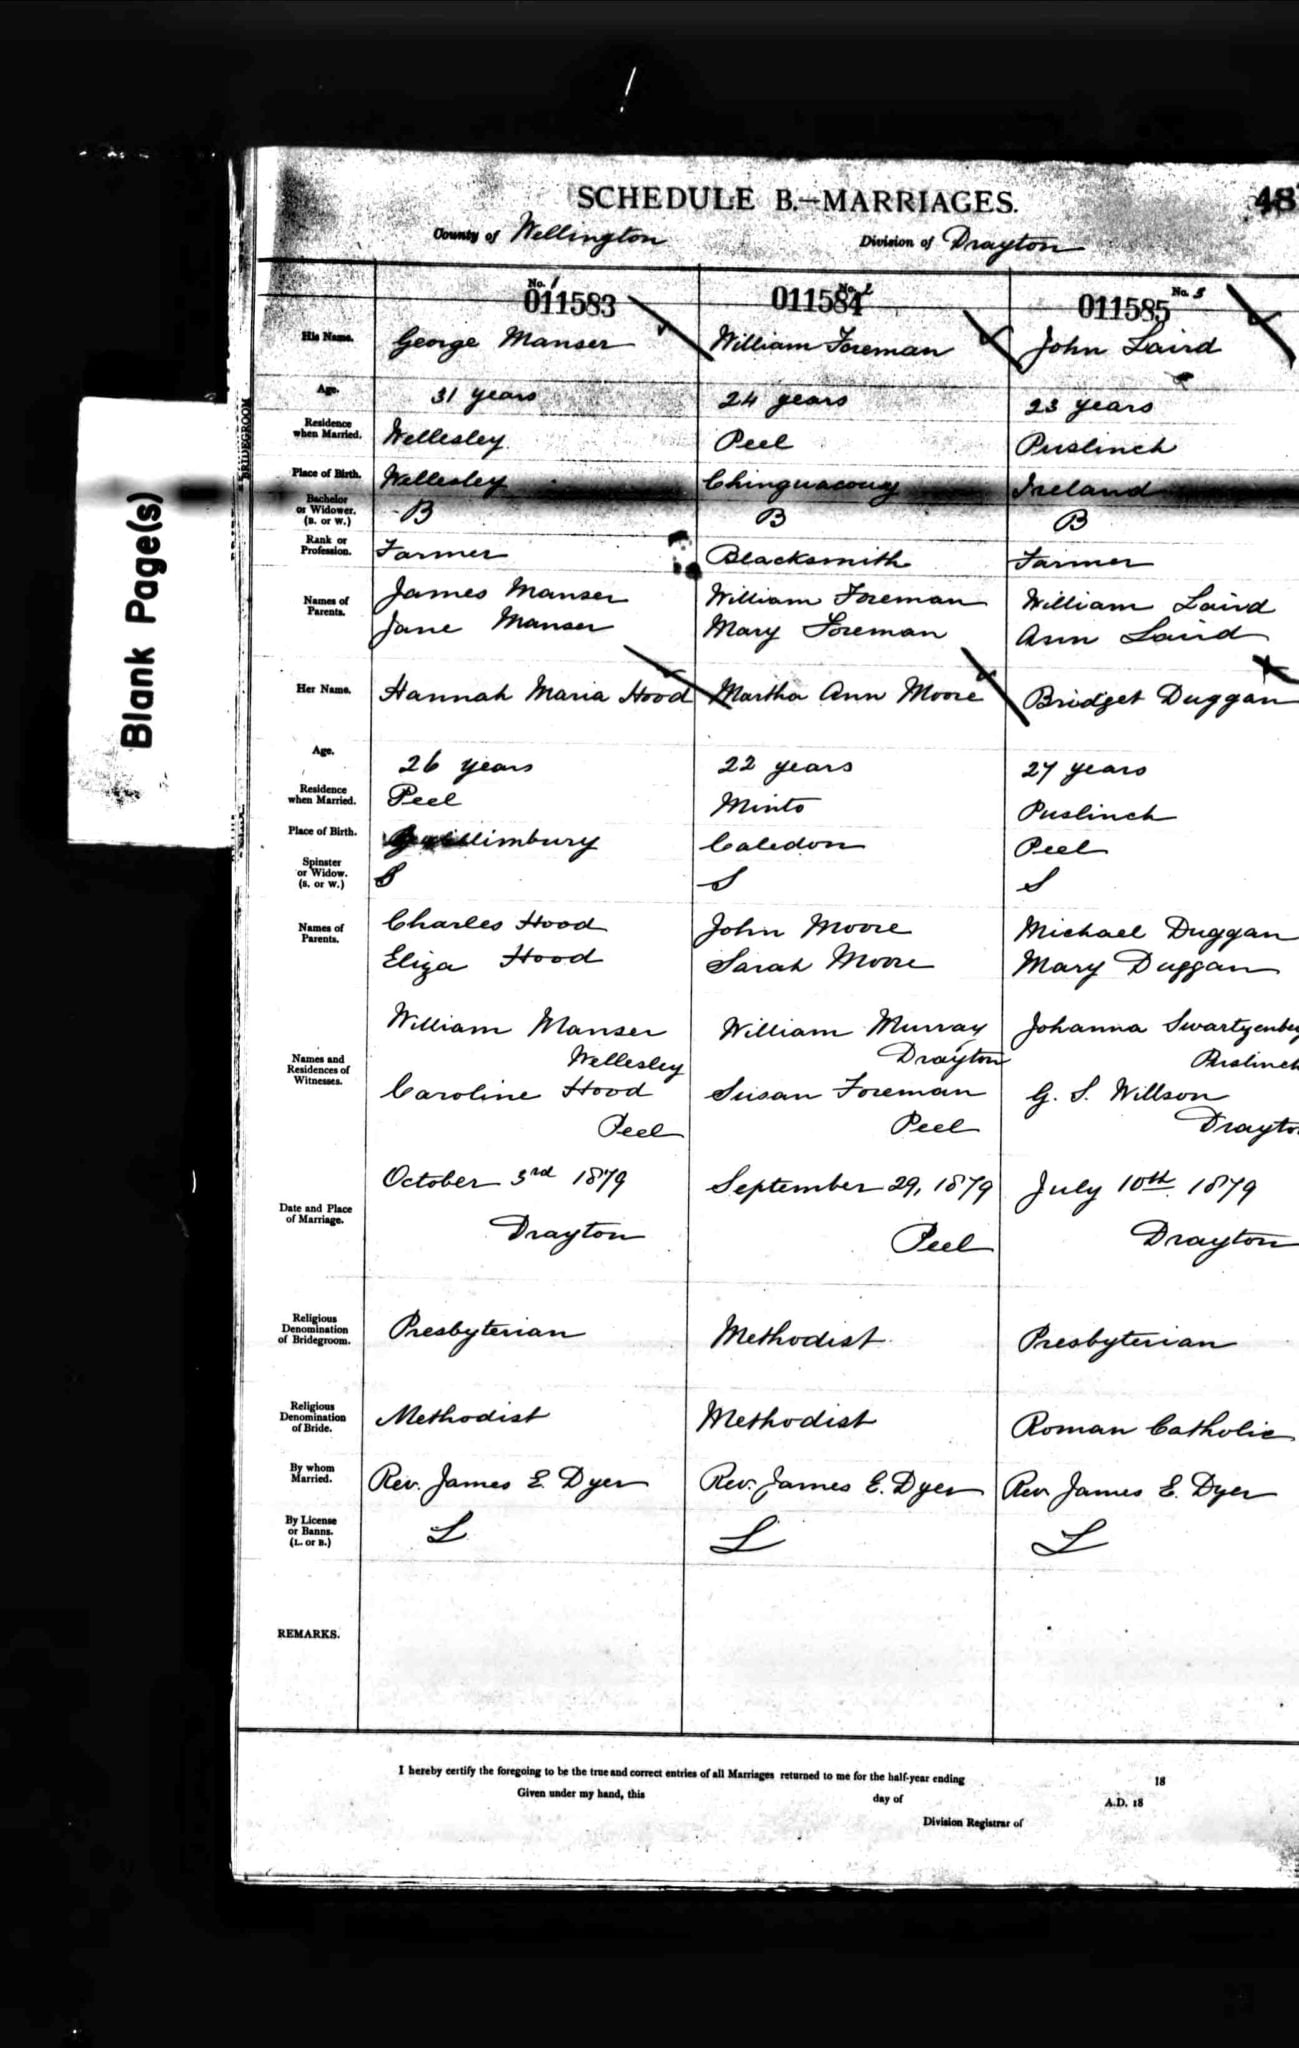 SCHEDULE B.—MARRIAGES.
48
County of Wellington Division of Drayton
No. 1 No. 2 No. 3
011583 011584 011585
BRIDEGROOM
His Name. George Manser William Foreman John Laird
Age. 31 years 24 years 23 years
Residence
when Married. Wellesley Peel Puslinch
Place of Birth. Wellesley Chinguacouy Ireland
Bachelor
or Widower.
(B. or W.) B B B
Rank or
Profession. Farmer Blacksmith Farmer
Names of
Parents. James Manser William Foreman William Laird
Jane Manser Mary Foreman Ann Laird
Her Name. Hannah Maria Hood Martha Ann Moore Bridget Duggan
Age. 26 years 22 years 27 years
Residence
when Married. Peel Minto Puslinch
Place of Birth. Gwillimbury Caledon Peel
Spinster
or Widow.
(S. or W.) S S S
Names of
Parents. Charles Hood John Moore Michael Duggan
Eliza Hood Sarah Moore Mary Duggan
Names and
Residences of
Witnesses. William Manser William Murray Johanna
Wellesley Drayton Puslinch
Caroline Hood Susan Foreman G. S. Willson
Peel Peel Drayto
Date and Place
of Marriage. October 3rd 1879 September 29, 1879 July 10th 1879
Drayton Peel Drayton
Religious
Denomination
of Bridegroom. Presbyterian Methodist Presbyterian
Religious
Denomination
of Bride. Methodist Methodist Roman Catholic
By whom
Married. Rev. James E. Dyer Rev. James E. Dyer Rev. James E. Dyer
By License
or Banns.
(L. or B.) L L L
REMARKS.
I hereby certify the foregoing to be the true and correct entries of all Marriages returned to me for the half-year ending 18
Given under my hand, this day of A.D. 18
Division Registrar of
Blank Page(s)